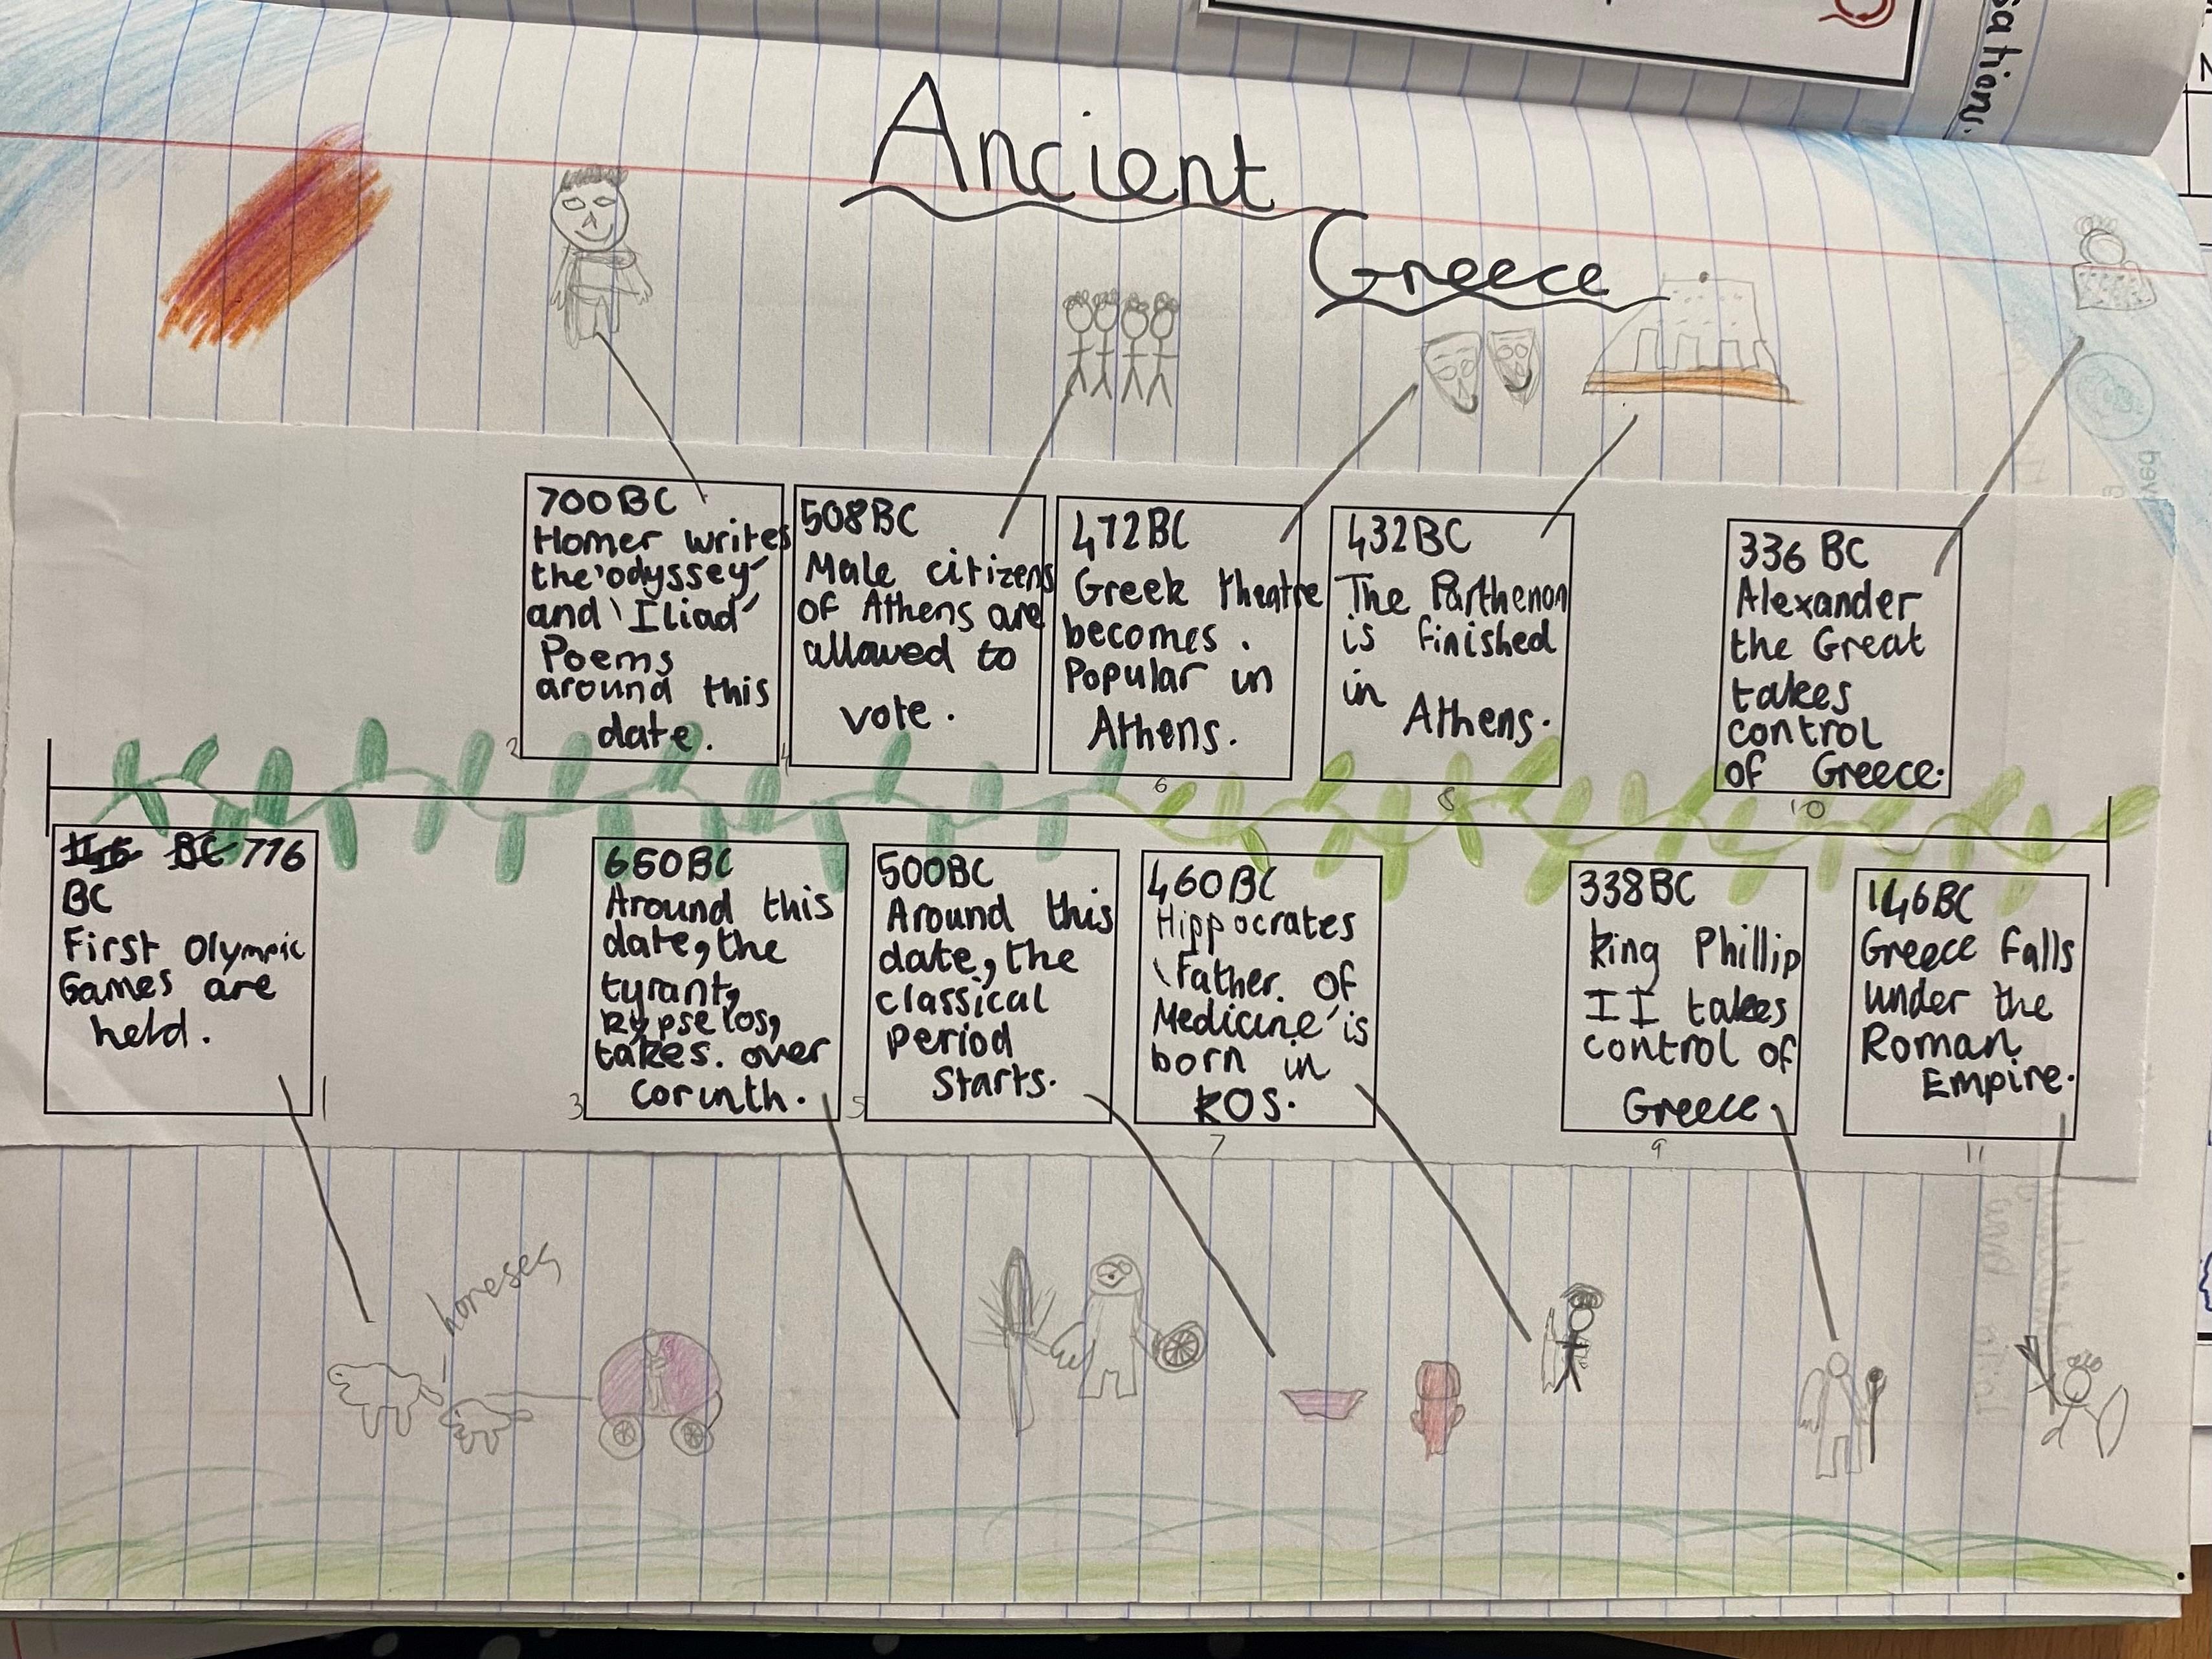 sations.
Ancient
Greece
700BC
Homer writes
the 'odyssey'
and 'Iliad'
Poems
around this
date.
2
508BC
Male citizens
of Athens are
allowed to
vote.
4
472BC
Greek theatre
becomes.
Popular in
Athens.
6
432BC
The Parthenon
is finished
in
Athens.
8
336 BC
Alexander
the Great
takes
control
of Greece.
10
776
BC
First Olympic
Games are
held.
1
650BC
Around this
date, the
tyrant,
kypselos,
takes. over
Corinth.
3
500BC
Around this
date, the
classical
Period
Starts.
5
460BC
Hippocrates
'Father. of
Medicine' is
born in
KOS.
7
338BC
king Phillip
II takes
control of
Greece.
9
146BC
Greece falls
under the
Roman
Empire.
11
horeses